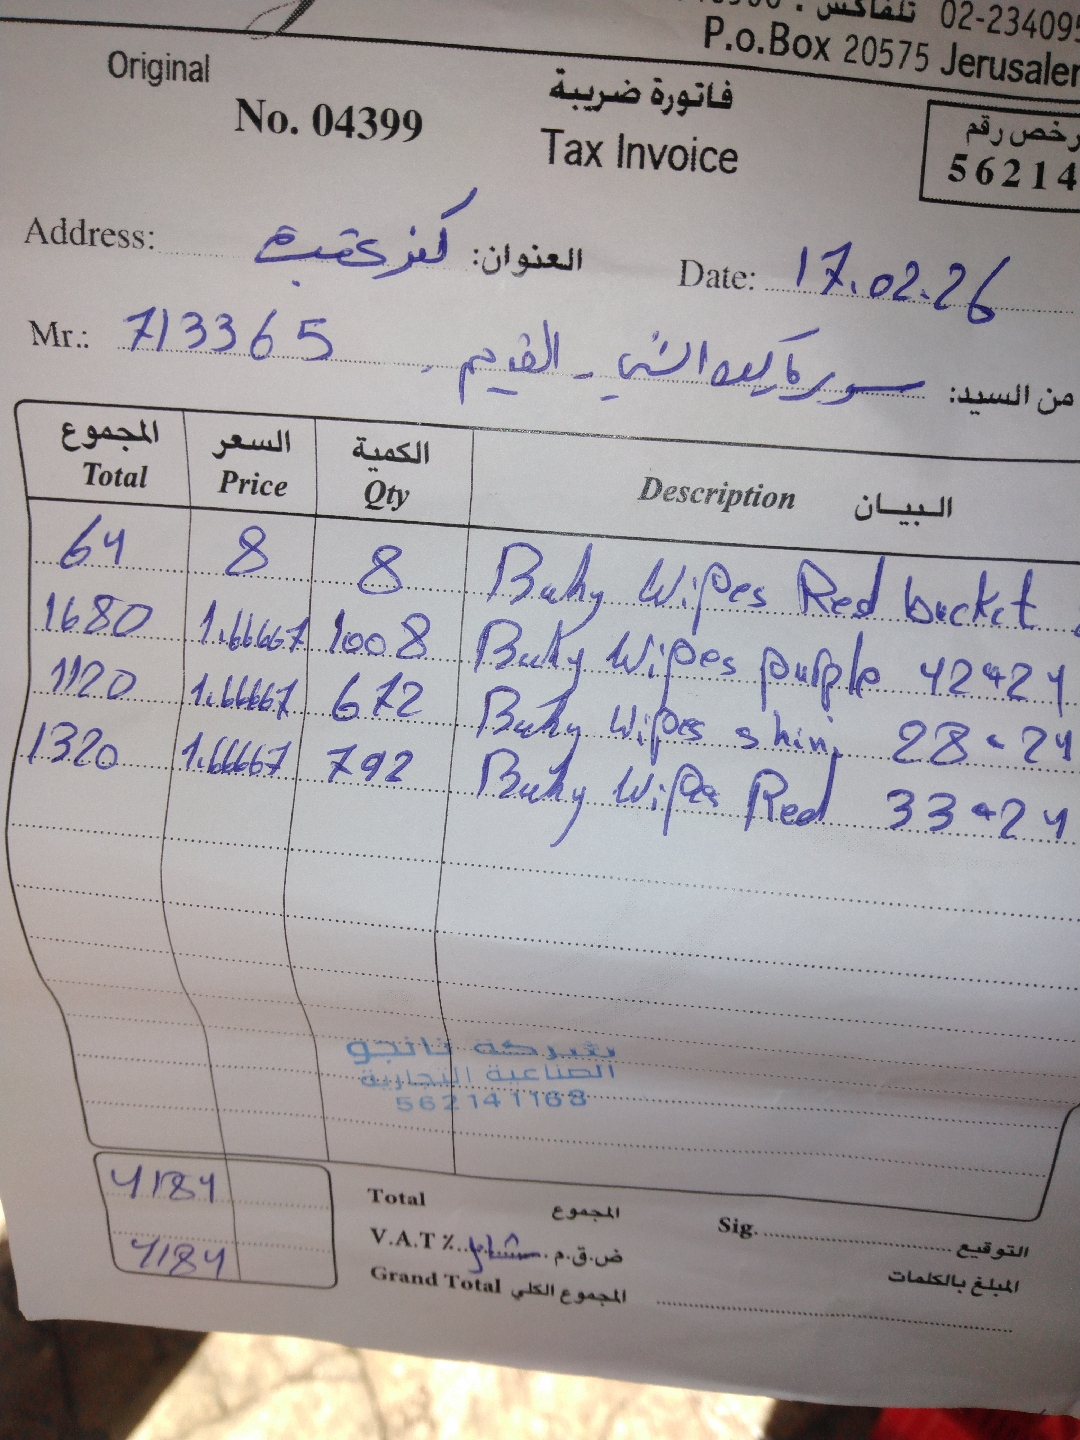 تلفاكس : 02-23409
P.o.Box 20575 Jerusalem
Original
No. 04399
فاتورة ضريبة
Tax Invoice
رخص رقم
56214
Address: كفر عقب العنوان:
Date: 17.02.26
Mr.: 713365 سوبر ماركت - القديم من السيد:
المجموع السعر الكمية
Total Price Qty Description البيان
64 8 8 Baby Wipes Red bucket
1680 1.66667 1008 Baby Wipes purple 42*24
1120 1.66667 672 Baby Wipes shini 28*24
1320 1.66667 792 Baby Wipes Red 33*24
شركة نانجو
الصناعية التجارية
562141168
4184 Total المجموع
Sig. التوقيع
V.A.T ٪ شامل ض.ق.م.
4184 Grand Total المجموع الكلي
المبلغ بالكلمات